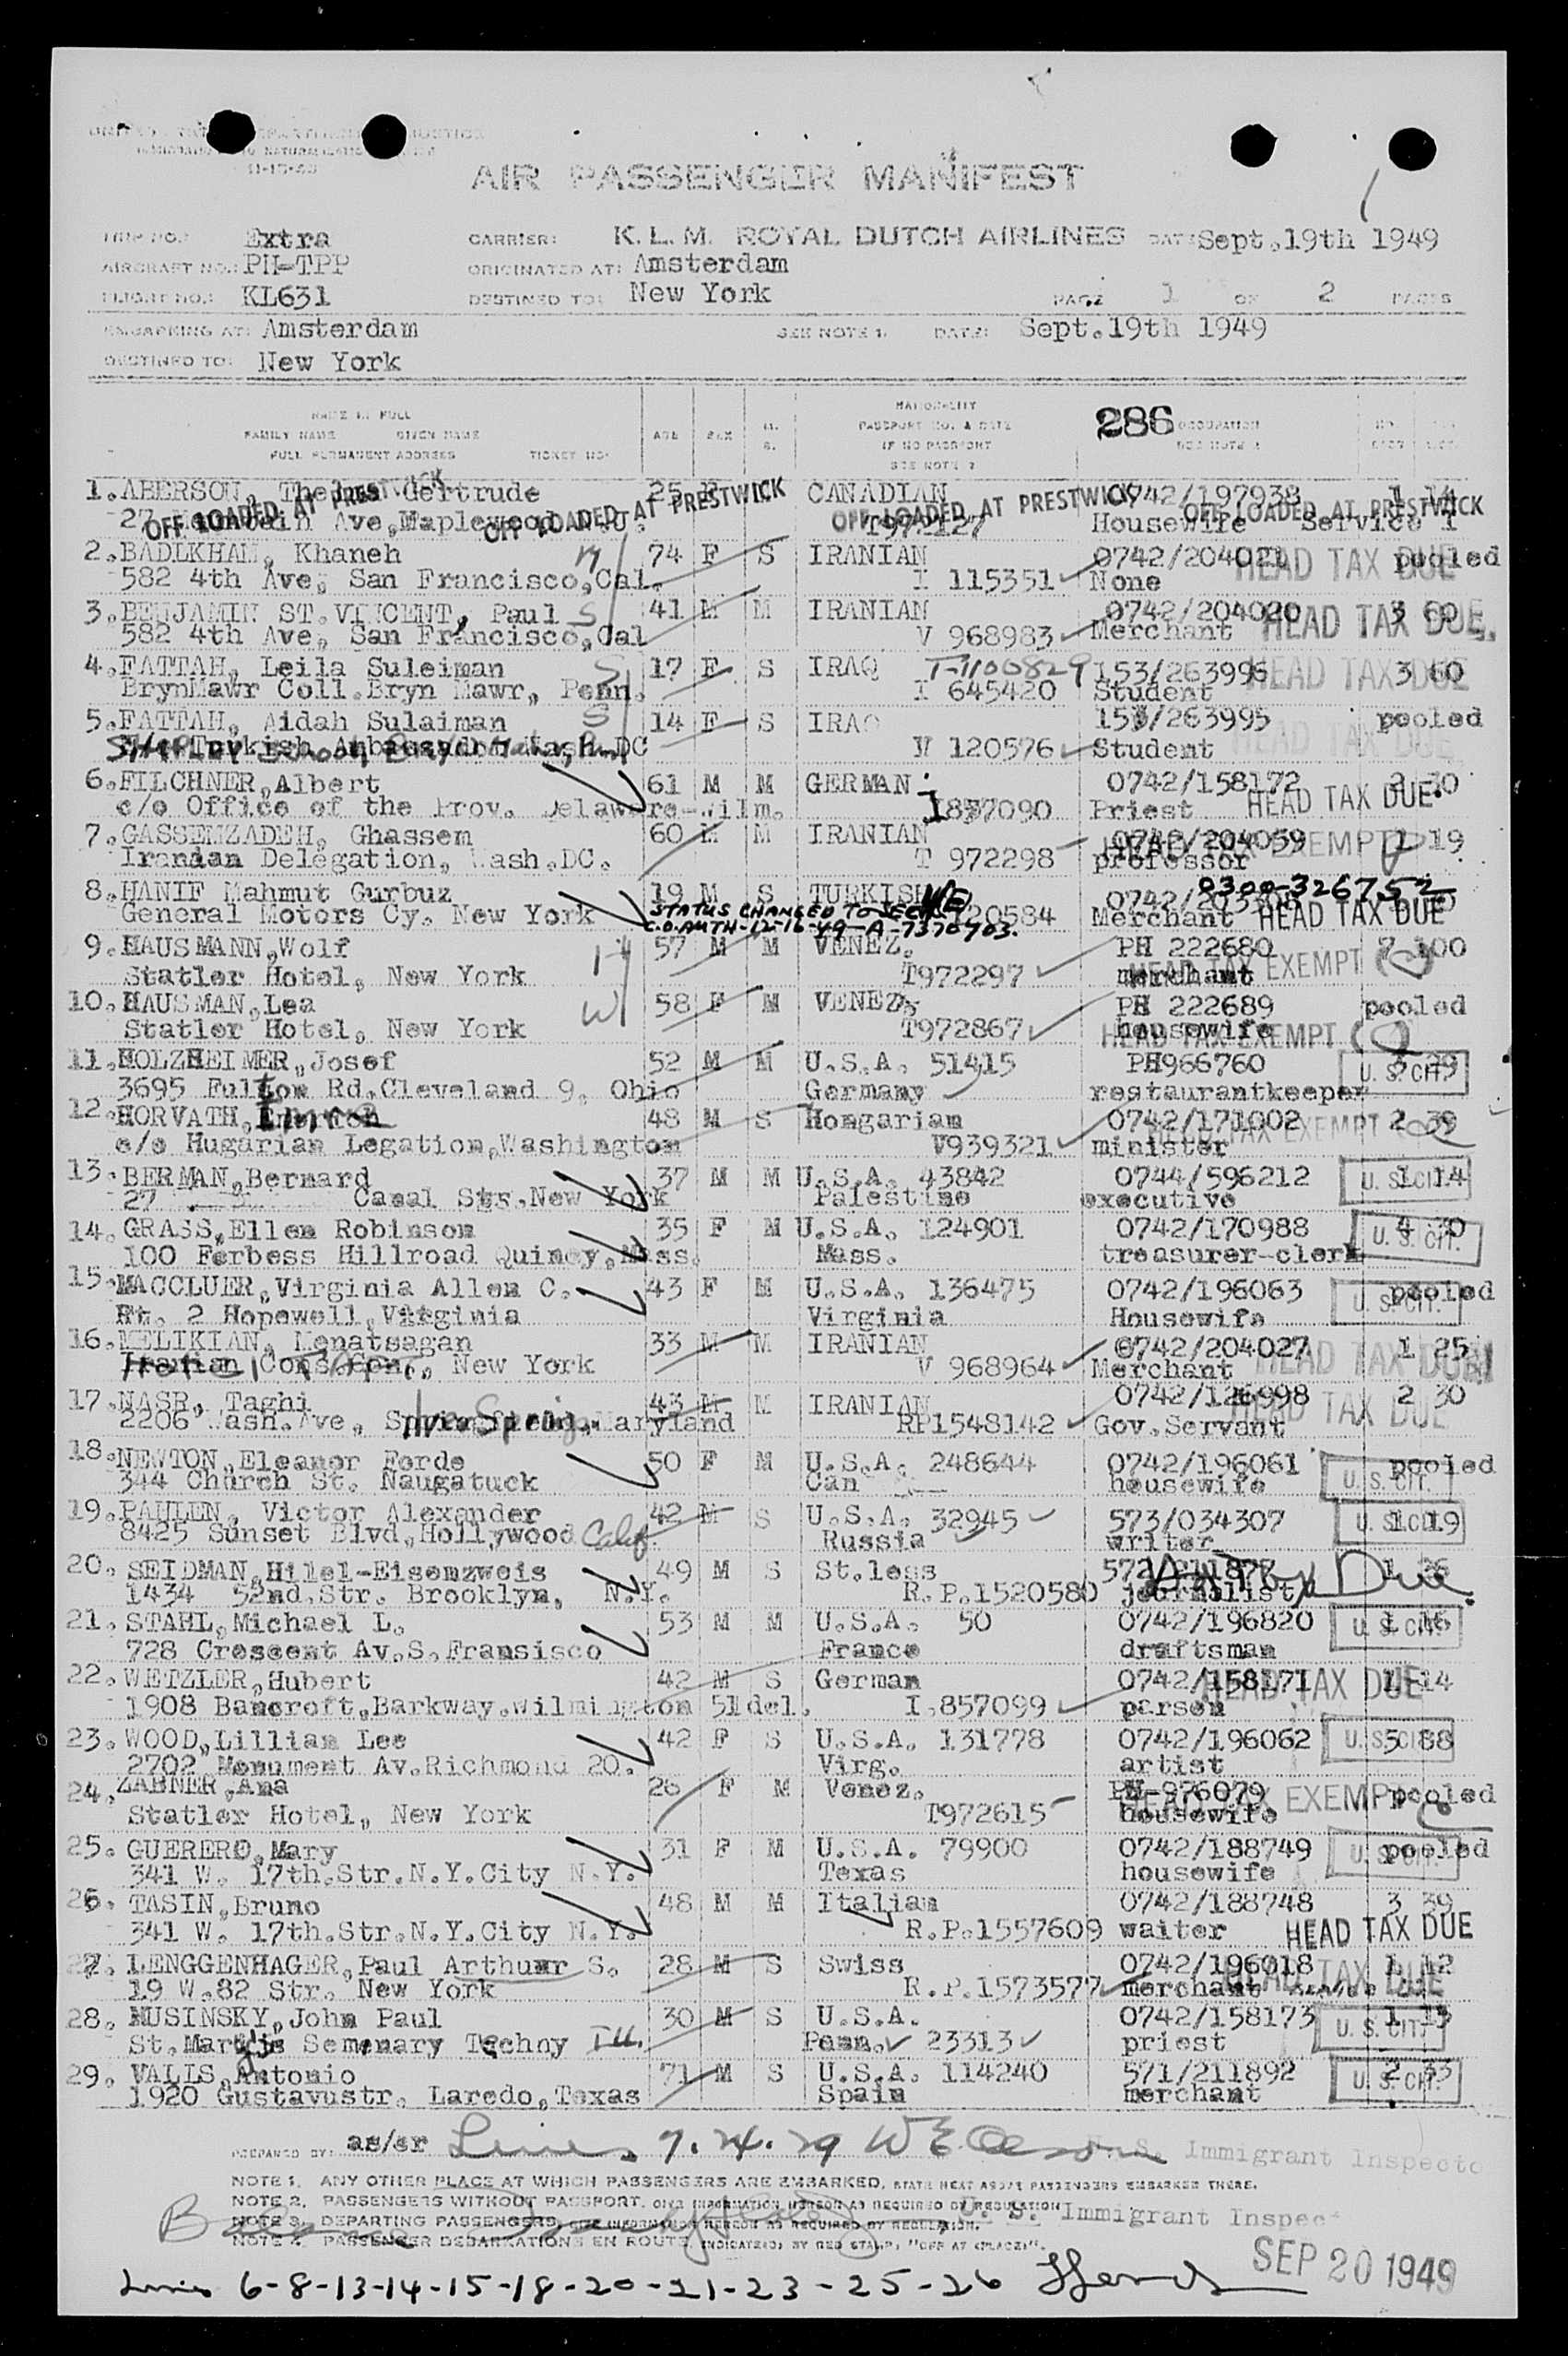 AIR PASSENGER MANIFEST
TRIP NO.: Extra CARRIER: K.L.M. ROYAL DUTCH AIRLINES DATE Sept.19th 1949
AIRCRAFT NO.: PH-TPP ORIGINATED AT: Amsterdam
FLIGHT NO.: KL631 DESTINED TO: New York PAGE 1 OF 2 PAGES
EMBARKING AT: Amsterdam SEE NOTE 1. DATE: Sept.19th 1949
DESTINED TO: New York
NAME IN FULL NATIONALITY 286
FAMILY NAME GIVEN NAME AGE SEX PASSPORT NO. & DATE OCCUPATION
FULL PERMANENT ADDRESS TICKET NO. IF NO PASSPORT
SEE NOTE 2
1. ABERSON, Thelma Gertrude 25 F CANADIAN 0742/197938 1 14
OFF LOADED AT PRESTWICK OFF LOADED AT PRESTWICK OFF LOADED AT PRESTWICK OFF LOADED AT PRESTWICK
Ave, Maplewood N.J. Housewife Service 1
2. BADLKHAN, Khaneh 74 F S IRANIAN 0742/204021 pooled
582 4th Ave, San Francisco,Cal. I 115351 None HEAD TAX DUE
3. BENJAMIN ST.VINCENT, Paul S 41 M M IRANIAN 0742/204020 3 60
582 4th Ave, San Francisco,Cal V 968983 Merchant HEAD TAX DUE.
4. FATTAH, Leila Suleiman S 17 F S IRAQ T-1100829 153/263996 3 60
BrynMawr Coll.Bryn Mawr, Penn. I 645420 Student HEAD TAX DUE
5. FATTAH, Aidah Sulaiman S 14 F S IRAQ 153/263995 pooled
120576 Student HEAD TAX DUE
6. FILCHNER,Albert 61 M M GERMAN 0742/158172 30
c/o Office of the Prov. Delaware-Wilm. Priest HEAD TAX DUE
7. GASSEMZADEH, Ghassem 60 M M IRANIAN 0742/204059 1 19
Iranian Delegation, Wash.DC. T 972298 professor HEAD TAX EXEMPT
8. HANIF Mahmut Gurbuz 19 M S TURKISH 0300-326752
General Motors Cy. New York 120584 Merchant HEAD TAX DUE
STATUS CHANGED TO SEC
C.O. AUTH-12-16-49-A-7370703.
9. HAUSMANN,Wolf H 57 M M VENEZ. PH 222680 7 100
Statler Hotel, New York T972297 merchant HEAD TAX EXEMPT
10. HAUSMAN,Lea W 58 F M VENEZ. PH 222689 pooled
Statler Hotel, New York T972867 housewife HEAD TAX EXEMPT
11. HOLZHEIMER,Josef 52 M M U.S.A. 51415 PH966760 U. S. CIT.
3695 Fulton Rd.Cleveland 9, Ohio Germany restaurantkeeper
12. HORVATH, 48 M S Hongarian 0742/171002 2 39
c/o Hugarian Legation,Washington V939321 minister HEAD TAX EXEMPT
13. BERMAN,Bernard 37 M M U.S.A. 43842 0744/596212 1 14 U. S. CIT.
27 Canal Str.New York Palestine executive
14. GRASS,Ellen Robinson 35 F M U.S.A. 124901 0742/170988 4 30 U. S. CIT.
100 Forbess Hillroad Quincy,Mass. Mass. treasurer-clerk
15. MACCLUER,Virginia Allen C. 43 F M U.S.A. 136475 0742/196063 pooled U. S. CIT.
Rt. 2 Hopewell,Virginia Virginia Housewife
16. MELIKIAN, Menatsagan 33 M M IRANIAN 0742/204027 1 25
New York V 968964 Merchant HEAD TAX DUE
17. NASR, Taghi 43 M M IRANIAN 2 30
2206 Wash.Ave, Maryland RP1548142 Gov.Servant HEAD TAX DUE
18. NEWTON,Eleanor Forde 50 F M U.S.A. 248644 0742/196061 pooled
344 Church St. Naugatuck Can housewife U. S. CIT.
19. PAHLEN, Victor Alexander 42 M S U.S.A. 32945 573/034307 1 19 U. S. CIT.
8425 Sunset Blvd,Hollywood Calif. Russia writer
20. SEIDMAN,Hilel-Eisenzweis 49 M S St.less
1434 52nd.Str. Brooklyn, N.Y. R.P.1520580 journalist
21. STAHL,Michael L. 53 M M U.S.A. 50 0742/196820 U. S. CIT.
728 Crescent Av.S.Fransisco France draftsman
22. WETZLER,Hubert 42 M S German 0742/158171 1 14
1908 Bancroft,Barkway.Wilmington 51del. I.857099 parson HEAD TAX DUE
23. WOOD,Lillian Lee 42 F S U.S.A. 131778 0742/196062 5 88 U. S. CIT.
2702 Monument Av.Richmond 20. Virg. artist
24. ZABNER,Ana 26 F M Venez. PH-976079 pooled
Statler Hotel, New York T972615 housewife HEAD TAX EXEMPT
25. GUERERO,Mary 31 F M U.S.A. 79900 0742/188749 pooled
341 W. 17th.Str.N.Y.City N.Y. Texas housewife U. S. CIT.
26. TASIN,Bruno 48 M M Italian 0742/188748 3 39
341 W. 17th.Str.N.Y.City N.Y. R.P.1557609 waiter HEAD TAX DUE
27. LENGGENHAGER,Paul Arthuur S. 28 M S Swiss 0742/196018 1 12
19 W.82 Str. New York R.P.1573577 merchant HEAD TAX DUE
28. MUSINSKY,John Paul 30 M S U.S.A. 0742/158173 1 13 U. S. CIT.
St. Semenary Techny Ill. Penn. 23313 priest
29. VALLS,Antonio 71 M S U.S.A. 114240 571/211892 2 33 U. S. CIT.
1920 Gustavustr. Laredo,Texas Spain merchant
PREPARED BY: as/sr U. S. Immigrant Inspecto
NOTE 1. ANY OTHER PLACE AT WHICH PASSENGERS ARE EMBARKED, STATE NEXT ABOVE PASSENGERS EMBARKED THERE.
NOTE 2. PASSENGERS WITHOUT PASSPORT, GIVE INFORMATION HEREON AS REQUIRED BY REGULATION
U. S. Immigrant Inspect
NOTE 3. DEPARTING PASSENGERS, GIVE INFORMATION HEREON AS REQUIRED BY REGULATION.
NOTE 4. PASSENGER DEBARKATIONS EN ROUTE, INDICATED BY RED STAMP, "OFF AT (PLACE)".
SEP 20 1949
6-8-13-14-15-18-20-21-23-25-26